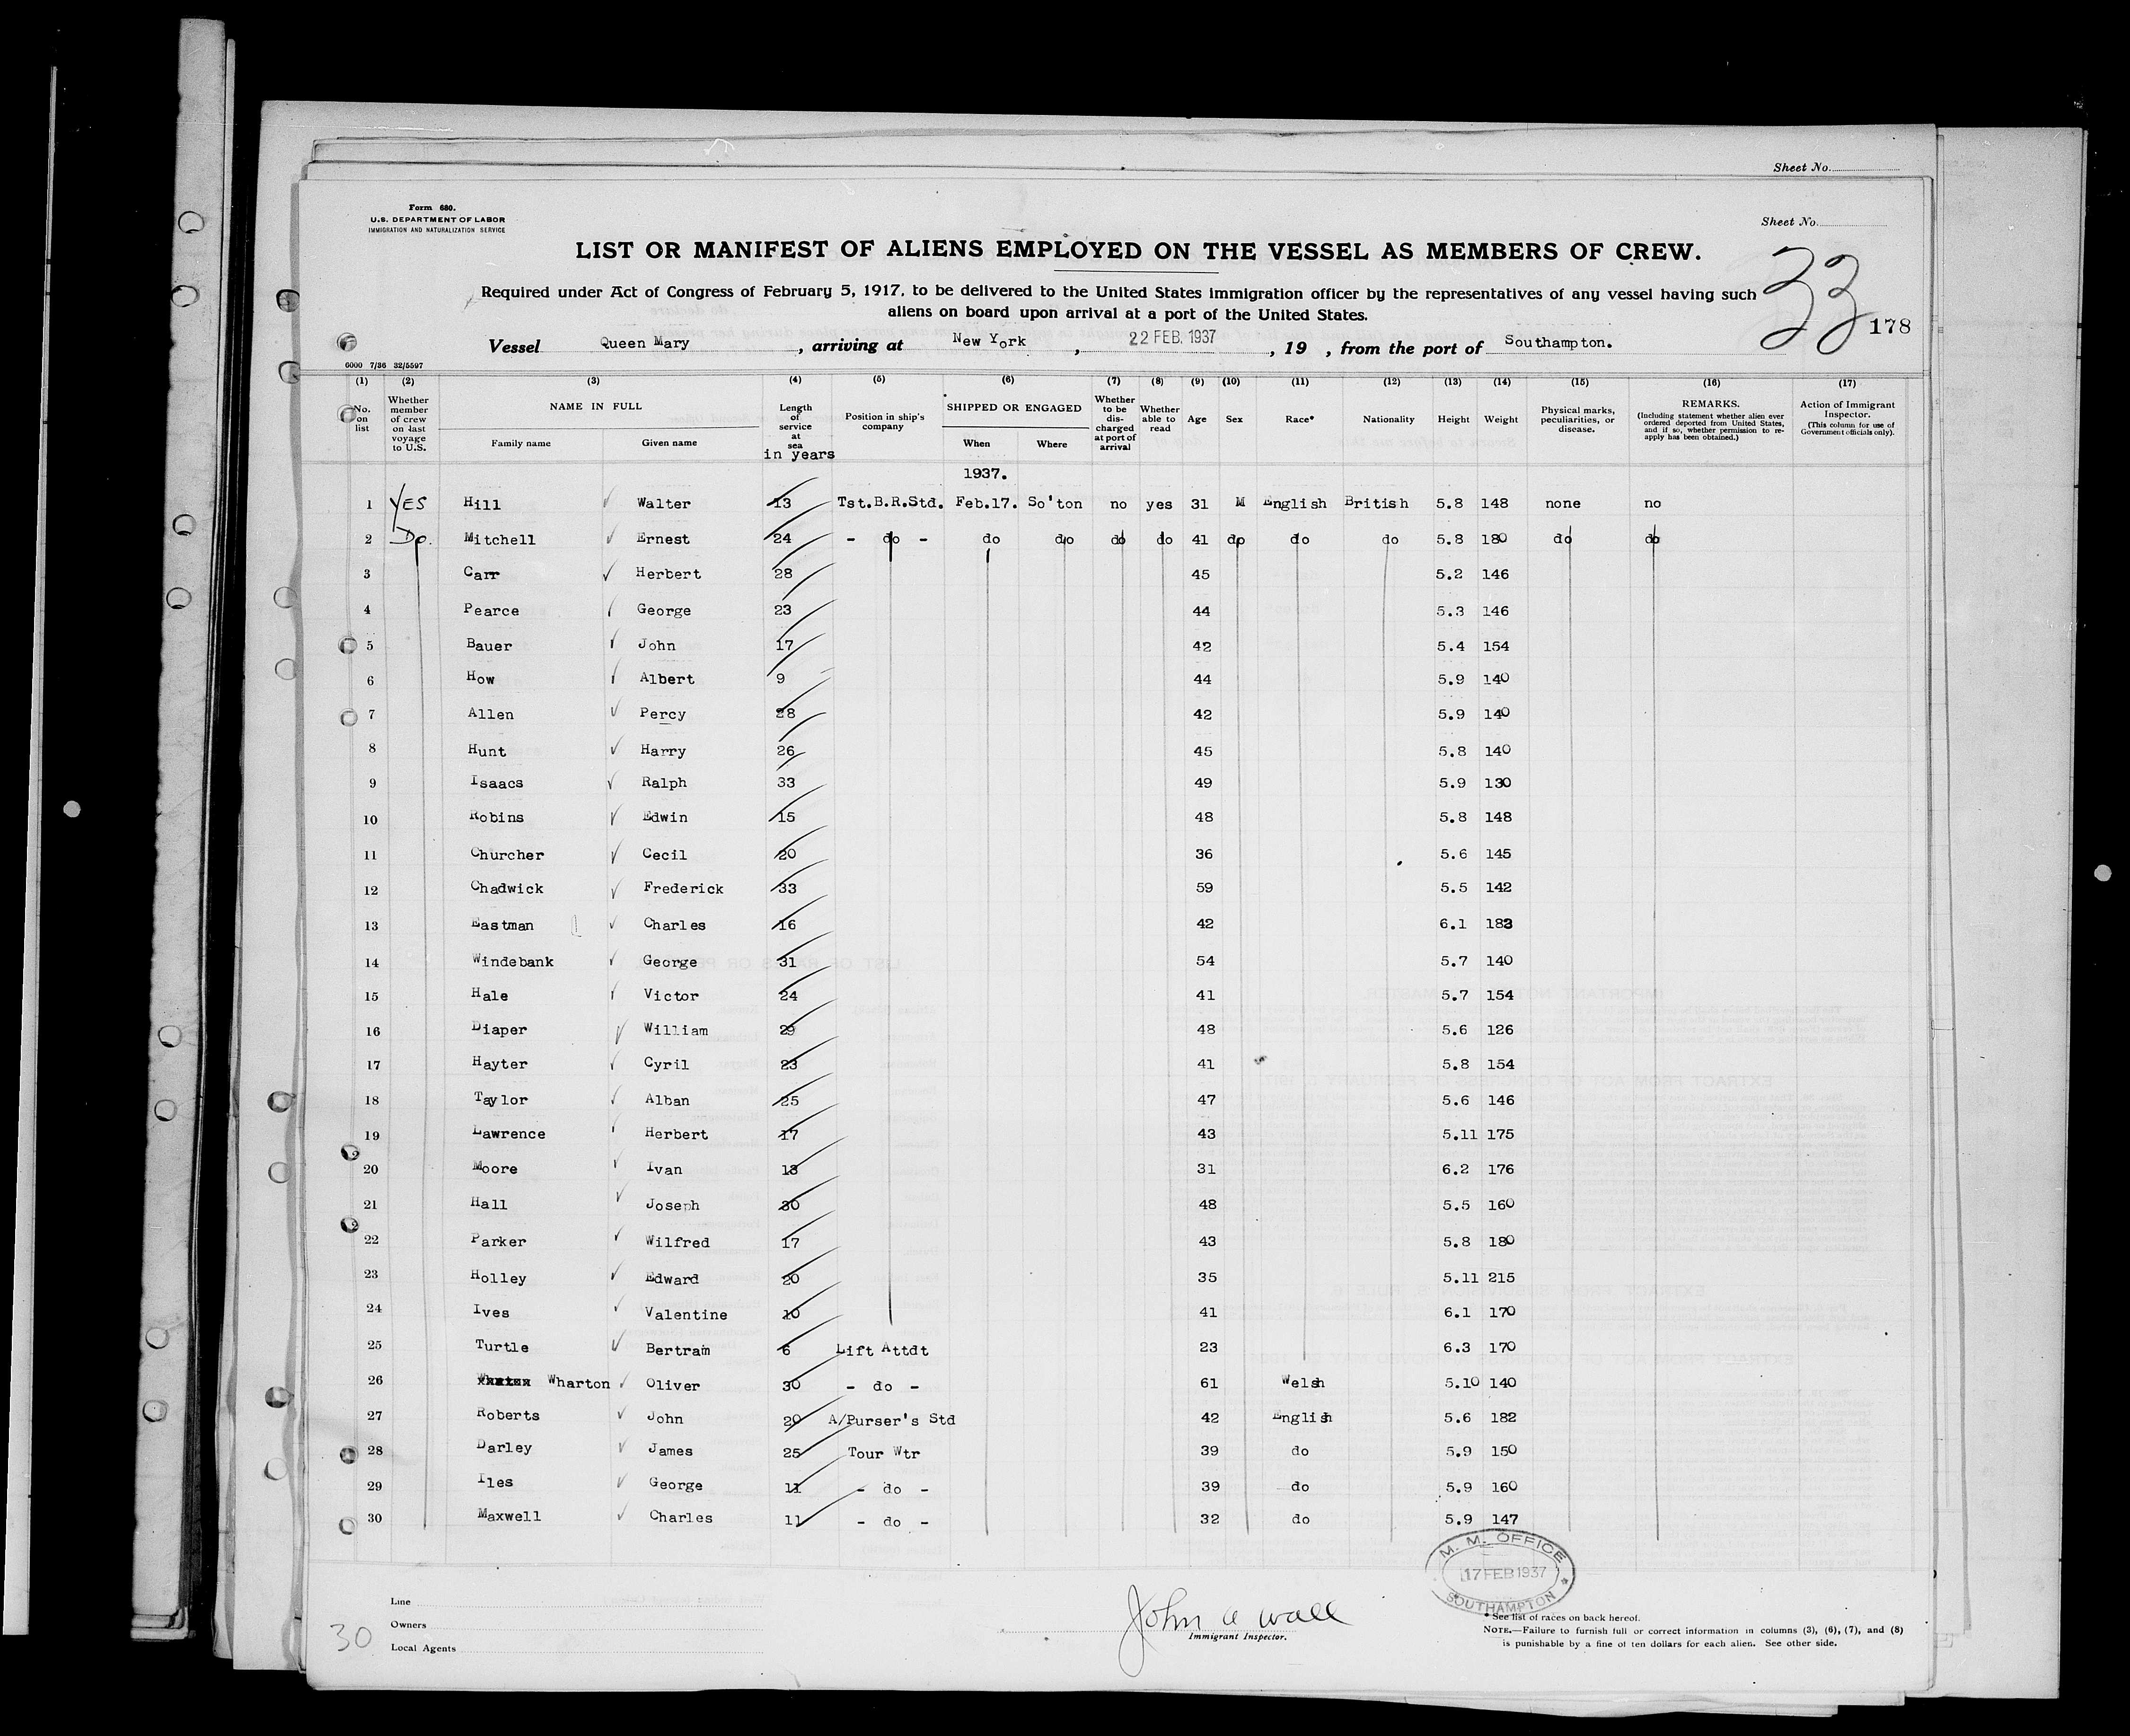 Sheet No.
Form 680.
U.S. DEPARTMENT OF LABOR
IMMIGRATION AND NATURALIZATION SERVICE
Sheet No.
LIST OR MANIFEST OF ALIENS EMPLOYED ON THE VESSEL AS MEMBERS OF CREW.
Required under Act of Congress of February 5, 1917, to be delivered to the United States immigration officer by the representatives of any vessel having such
aliens on board upon arrival at a port of the United States.
33
178
Vessel Queen Mary, arriving at New York, 22 FEB. 1937, 19 , from the port of Southampton.
6000 7/36 32/5597
(1) (2) (3) (4) (5) (6) (7) (8) (9) (10) (11) (12) (13) (14) (15) (16) (17)
No. on list
Whether member of crew on last voyage to U.S.
NAME IN FULL
Family name Given name
Length of service at sea
in years
Position in ship's company
SHIPPED OR ENGAGED
When Where
Whether to be discharged at port of arrival
Whether able to read
Age Sex Race* Nationality Height Weight
Physical marks, peculiarities, or disease.
REMARKS.
(Including statement whether alien ever ordered deported from United States, and if so, whether permission to re-apply has been obtained.)
Action of Immigrant Inspector.
(This column for use of Government officials only).
1937.
1 YES Hill Walter 13 Tst.B.R.Std. Feb.17. So'ton no yes 31 M English British 5.8 148 none no
2 Do. Mitchell Ernest 24 - do - do do do do 41 do do do 5.8 180 do do
3 Carr Herbert 28 45 5.2 146
4 Pearce George 23 44 5.3 146
5 Bauer John 17 42 5.4 154
6 How Albert 9 44 5.9 140
7 Allen Percy 28 42 5.9 140
8 Hunt Harry 26 45 5.8 140
9 Isaacs Ralph 33 49 5.9 130
10 Robins Edwin 15 48 5.8 148
11 Churcher Cecil 20 36 5.6 145
12 Chadwick Frederick 33 59 5.5 142
13 Eastman Charles 16 42 6.1 183
14 Windebank George 31 54 5.7 140
15 Hale Victor 24 41 5.7 154
16 Diaper William 29 48 5.6 126
17 Hayter Cyril 23 41 5.8 154
18 Taylor Alban 25 47 5.6 146
19 Lawrence Herbert 17 43 5.11 175
20 Moore Ivan 13 31 6.2 176
21 Hall Joseph 30 48 5.5 160
22 Parker Wilfred 17 43 5.8 180
23 Holley Edward 20 35 5.11 215
24 Ives Valentine 10 41 6.1 170
25 Turtle Bertram 6 Lift Attdt 23 6.3 170
26 Wharton Oliver 30 - do - 61 Welsh 5.10 140
27 Roberts John 20 A/Purser's Std 42 English 5.6 182
28 Darley James 25 Tour Wtr 39 do 5.9 150
29 Iles George 11 - do - 39 do 5.9 160
30 Maxwell Charles 11 - do - 32 do 5.9 147
M. M. OFFICE
17 FEB 1937
SOUTHAMPTON
Line
Owners
Local Agents
30
John A Wall
Immigrant Inspector.
* See list of races on back hereof.
NOTE.—Failure to furnish full or correct information in columns (3), (6), (7), and (8)
is punishable by a fine of ten dollars for each alien. See other side.